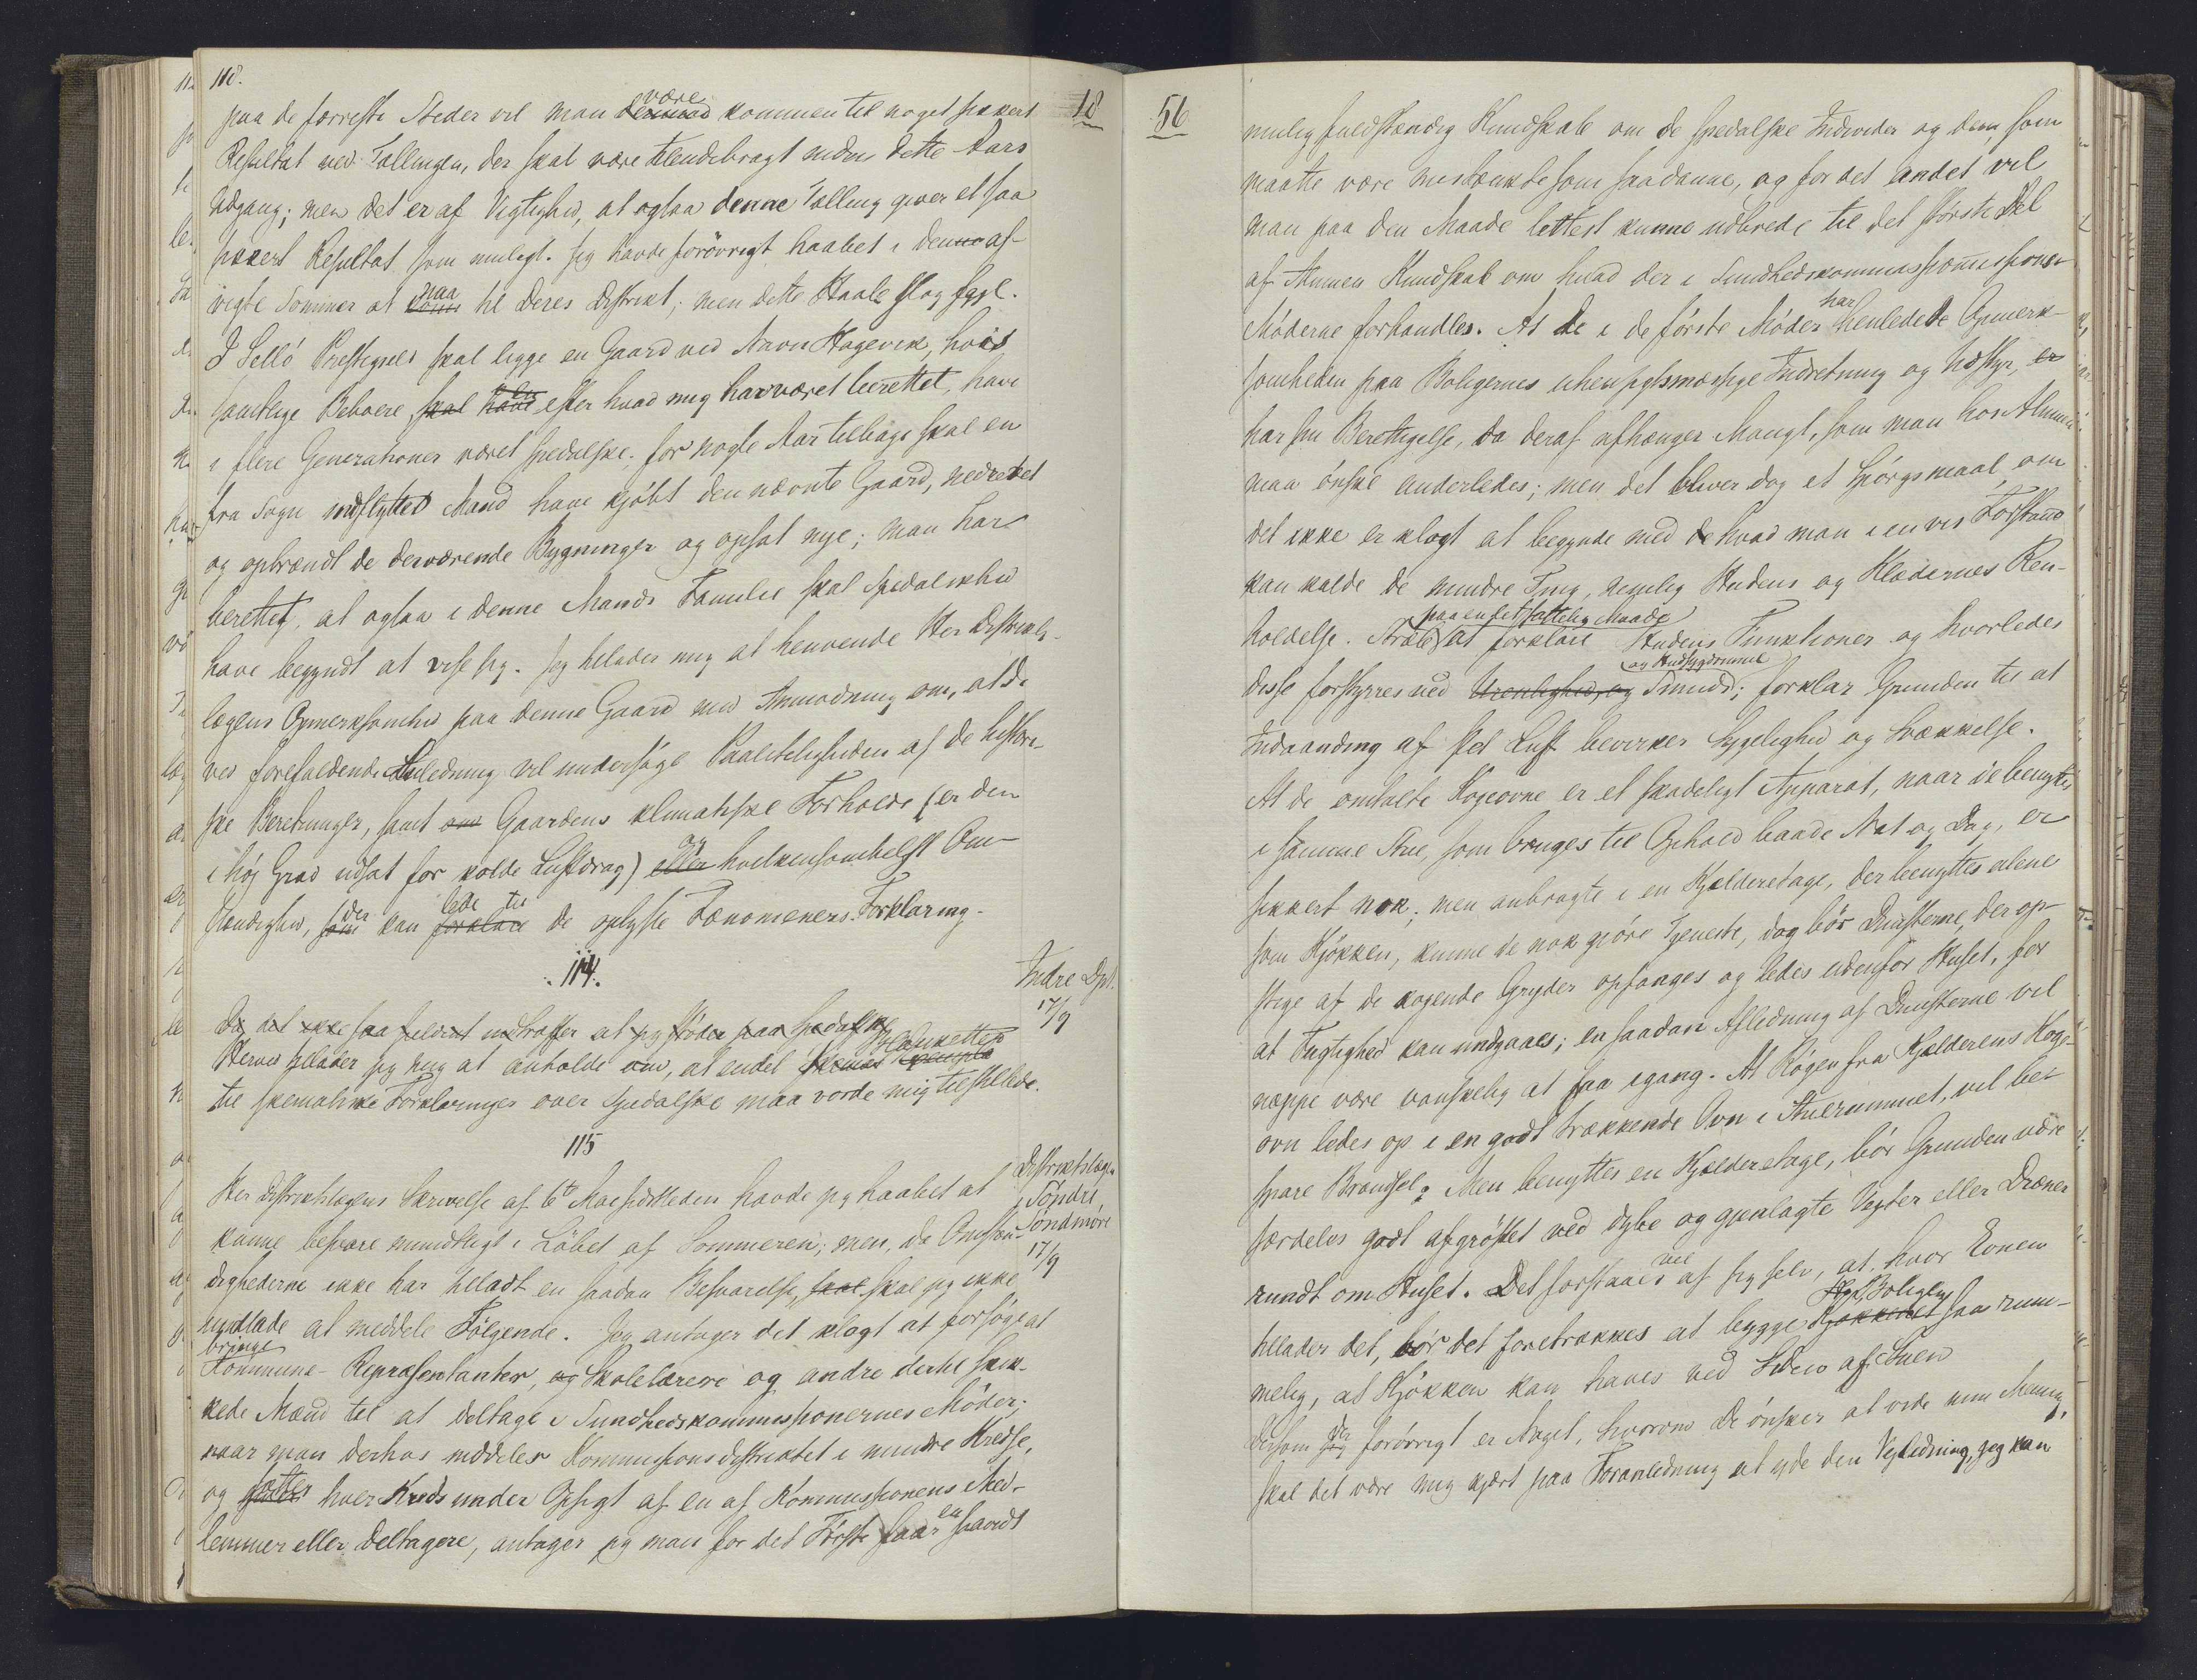 118.
paa de færreste Steder vil man være dermed kommen til noget sikkert
Resultat ved Tællingen, der skal være tilendebragt inden dette Aars
Udgang; men det er af Vigtighed, at ogsaa denne Tælling giver et saa
sikkert Resultat som muligt. Jeg havde forövrigt haabet i denne af-
vigte Sommer at komme naa til Deres Distrikt; men dette Haab slog fejl.
I Sellö Prestegjeld skal ligge en Gaard ved Navn Hagevik, hvis
samtlige Beboere, skal have efter hvad mig har været berettet, have
i flere Generationer været spedalske; for nogle Aar tilbage skal en
fra Sogn indflyttet Mand have kjöbt den nævnte Gaard, nedrevet
og opbrændt de derværende Bygninger og opsat nye; man har
berettet, at ogsaa i denne Mands Familie skal Spedalskhed
have begyndt at vise sig. Jeg tillader mig at henvende Her Distrikts-
lægens Opmerksomhed paa denne Gaard med Anmodning om, at De
ved forefaldende Anledning vil undersöge Paalideligheden af de histori-
ske Beretninger, samt om Gaardens klimatiske Forholde (er den
i höj Grad udsat for kolde Luftdrag) eller og hvilkensomhelst Om-
stændighed, som der kan forklare lede til de oplyste Fænomeners Forklaring.
114.
Indre Dpt.
17/9
Da det ikke saa sjeldent indtræffer at jeg støder paa Spedalske
Herved tillader jeg mig at anholde om, at endel Skemas Blanketter
til skematiske Forklaringer over Spedalske maa vorde mig tilstillede.
115
Distriktslægen
i Söndre
Söndmöre
17/9
Her Distriktslægens Skrivelse af 6te Mai sidstleden havde jeg haabet at
kunne besvare mundtligt i Löbet af Sommeren; men, da Omstæn-
dighederne ikke har tilladt en saadan Besvarelse, skal skal jeg ikke
undlade at meddele Fölgende. Jeg antager det klogt at forsöge at
bringe
Kommune-Repræsentanter, og Skolelærere og andre dertil skik-
kede Mænd til at deltage i Sundhedskommissionernes Möder;
naar man derhos inddeler Kommissionsdistriktet i mindre Kredse,
og sætter hver Kreds under Opsigt af en af Kommissionens Med-
lemmer eller Deltagere, antager jeg man for det Förste faar en saavidt
18
56
mulig fuldstændig Kundskab om de spedalske Individer og dem, som
maatte være mistænkte som saadanne, og for det andet vil
man paa den Maade lettest kunne udbrede til det störste Del
af Almuen Kundskab om hvad der i Sundhedskommissionens
Möderne forhandles. At De i de förste Möder har henledede Opmerk-
somheden paa Boligernes uhensigtsmæssige Indretning og Udstyr, er
har sin Berettigelse, da deraf afhænger Mangt, som man hos Almuen
maa önske anderledes; men det bliver dog et Spörgsmaal, om
det ikke er klogt at begynde med de hvad man i en vis Forstand
kan kalde de mindre Ting, nemlig Hudens og Klædernes Ren-
holdelse. Stræb paa en let fattelig Maade at forklare Hudens Funktioner og hvorledes
disse forstyrres ved Urenlighed, og og Hudsygdomme Smuds; forklar Grunden til at
Indaanding af slet Luft bevirker Sygelighed og Svækkelse.
At de omtalte Kogeovne er et skadeligt Apparat, naar de benyttes
i samme Stue, som bruges til Ophold baade Nat og Dag, er
sikkert nok; men anbragte i en Kjælderetage, der benyttes alene
som Kjökken, kunne de nok gjöre Tjeneste, dog bör Dunsterne, der op-
stige af de kogende Gryder opfanges og ledes udenfor Huset, for
at Fugtighed kan undgaaes; en saadan Afledning af Dunsterne vil
neppe være vanskelig at faa igang. At Rögen fra Kjælderens Koge-
ovn ledes op i en godt trækkende Ovn i Stuerummet, vil be-
spare Brændsel. Men benyttes en Kjælderetage, bör Grunden være
særdeles godt afgröftet ved dybe og gjenlagte Veyter eller Dræner
rundt om Huset. Det forstaaes vel af sig selv, at, hvor Evnen
tillader det, bör det foretrækkes at bygge Kjökkenet Boliglig saa rum-
melig, at Kjökken kan haves ved Siden af Stuen
Dersom der forövrigt er Noget, hvorom De önsker at vide min Mening,
skal det være mig kjært paa Foranledning at yde den Vejledning, jeg kan